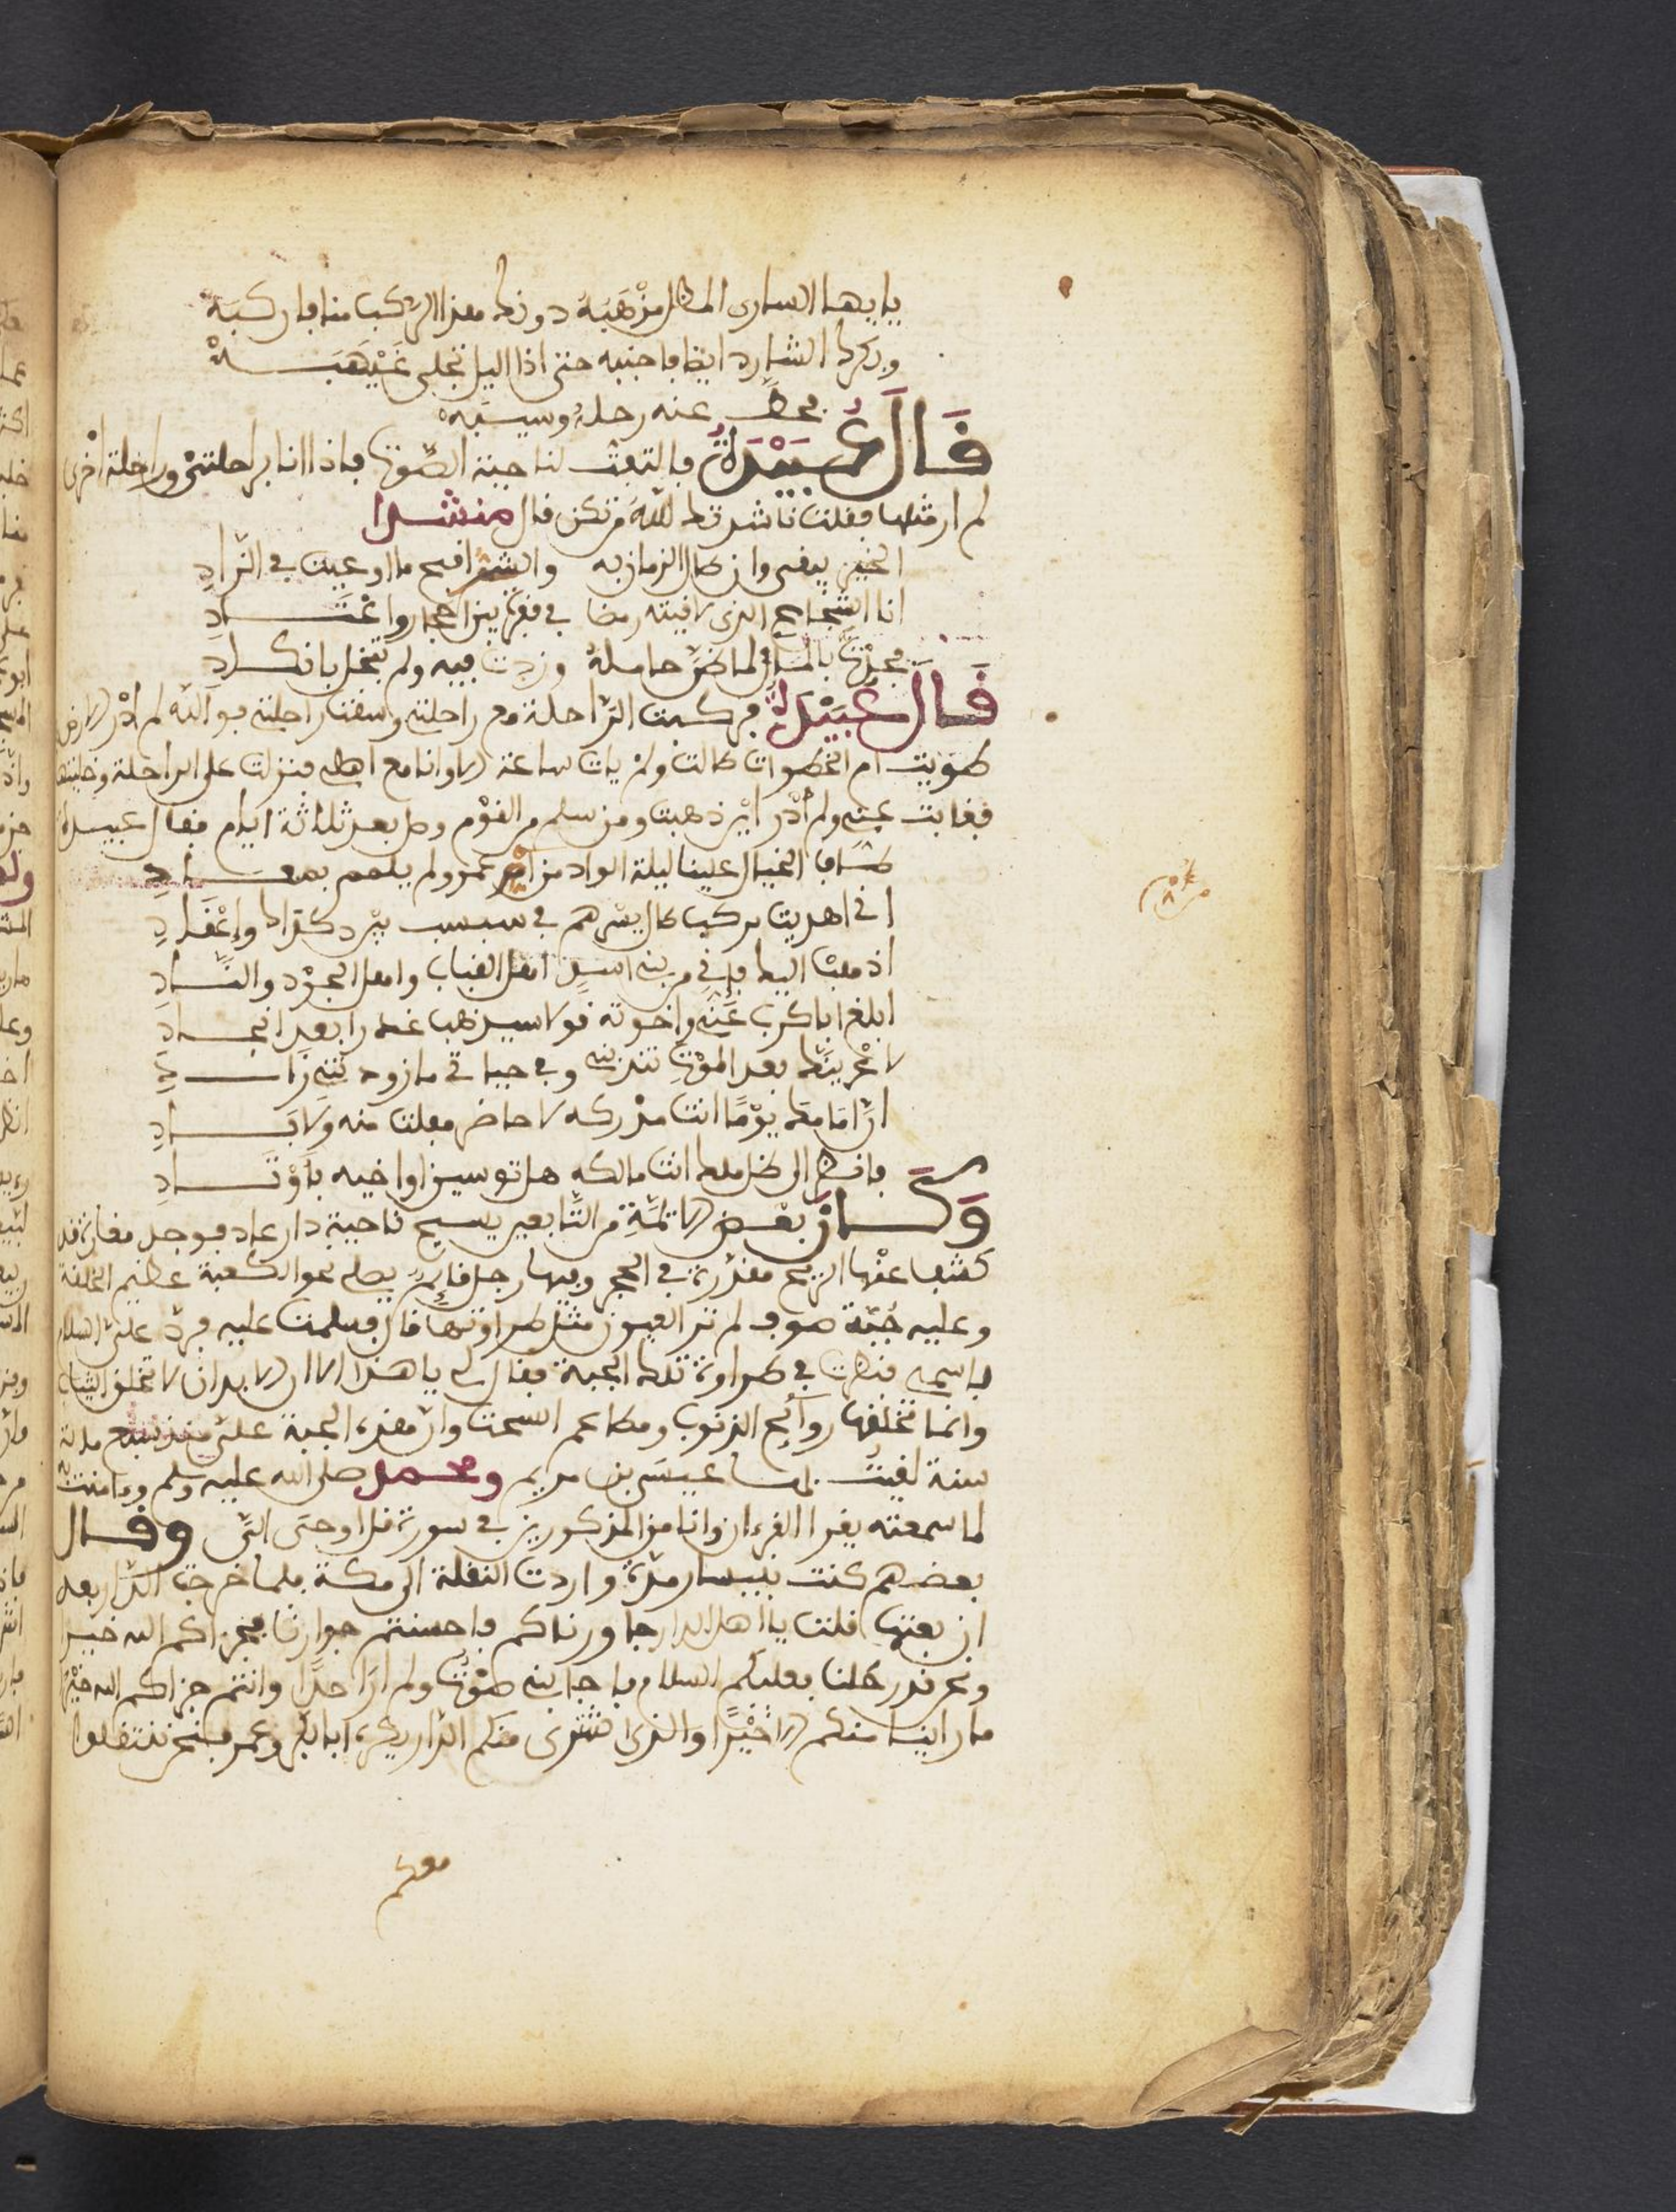 يا ايها الساري المظل مذهبه دونك هذا الركب منا فاركبه
وبكرك الشارد ايضا فاجنبه حتى اذا اليل تجلى غيهبه
فحط عنه رحله وسيبه
قال عبيدة فالتفت لناحية الصوت فاذا انا براحلتي وراحلة اخرى
لم ار مثلها فقلت ناشدتك الله من تكن قال منشدا
الخير يبقى وان طال الزمان به والشر اقبح ما اوعيت في الزاد
انا الشجاع الذي لاقيته رمضا في قفرة بين احجار واعقاد
فجدت بالماء لما ضن حامله وزدت فيه ولم تبخل بانكاد
قال عبيدة فركبت الراحلة مع راحلتي وسقت راحلتي فوالله لم ادر الارض
طويت ام الخطوات طالت ولم يات ساعة الا وانا مع اهلي فنزلت على الراحلة وخليتها
فغابت عني ولم ادر اين ذهبت ومن سلم من القوم وصل بعد ثلاثة ايام فقال عبيدة
طاف الخيال علينا ليلة الواد من ام عمرو ولم يلمم بمعاد
اني اهديت بركب طال يسرهم في سبسب بين دكداك واعقاد
اذهب اليك فاني من بني اسد اهل القباب واهل الجود والناد
ابلغ ابا كرب عني واخوته قولا سيذهب غورا بعد انجاد
لا اعرفنك بعد الموت تندبني وفي حياتي ما زودتني زاد
ان امامك يوما انت مدركه لا حاضر مفلت منه ولا باد
فانظر الى ظل ملك انت مالكه هل ترسين اواخيه باوتاد
وكان بعض الائمة من التابعين يسيح ناحية دار عاد فوجد مغارة قد
كشف عنها الريح مقدرة في الحجر وفيها رجل قائم يصلي نحو الكعبة عظيم الخلقة
وعليه جبة صوف لم تر العيون مثل طراوتها قال فسلمت عليه فرد علي السلام
باسمي فنظرت في طراوة تلك الجبة فقال لي يا هذا الا ان الابدان لا تخلق الثياب
وانما تخلقها روائح الذنوب ومطاعم السحت وان هذه الجبة علي منذ سبع مائة
سنة لقيت بها عيسى بن مريم ومحمد صلى الله عليه وسلم وءامنت به
لما سمعته يقرا القرءان وانا من المذكورين في سورة قل اوحي الي وقال
بعضهم كنت بنيسار مدة واردت النقلة الى مكة فلما خرجت الدار بعد
ان بعتها قلت يا اهل الدار جاورناكم فاحسنتم جوارنا فجزاكم الله خيرا
ونحن قد رحلنا فعليكم السلام فاجابني صوت ولم ار احدا وانتم جزاكم الله خيرا
ما راينا منكم الا خيرا والذي اشترى منكم الدار يكره ابا بكر وعمر فنحن ننتقلوا
معكم